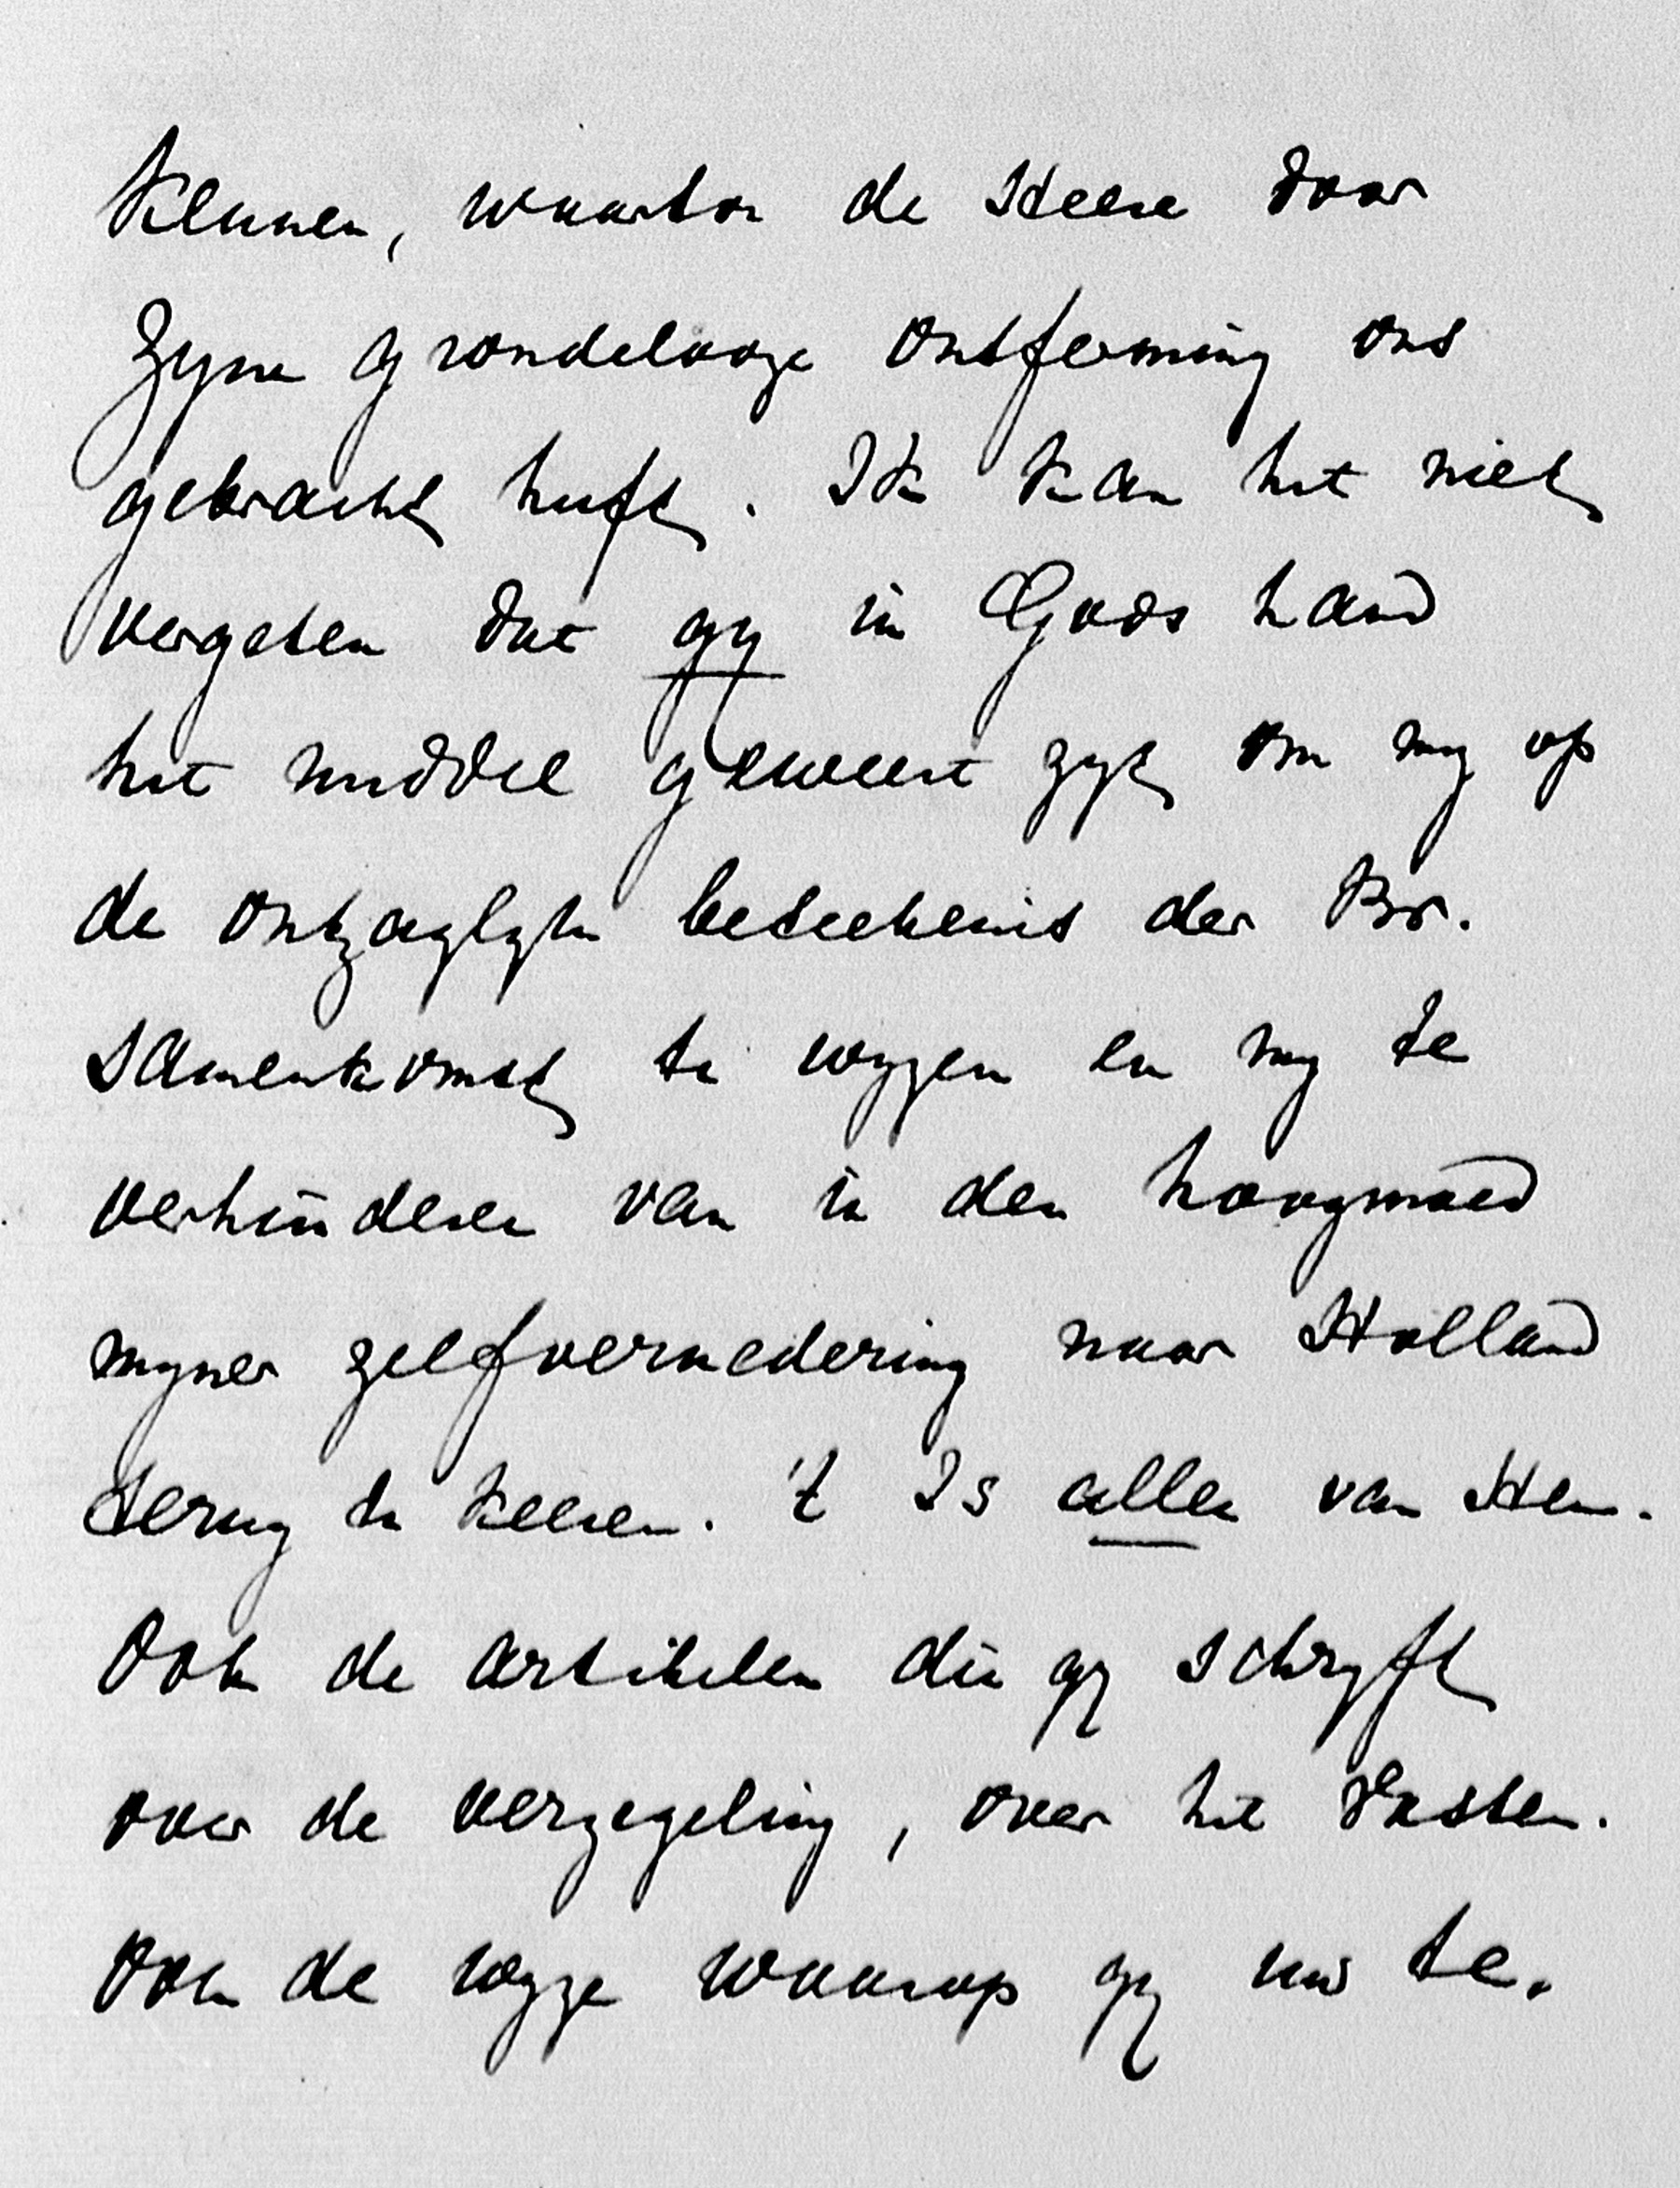 kennen, waartoe de Heere door
Zyne grondelooze ontferming ons
gebracht heeft. Ik kan het niet
vergeten dat gy in Gods hand
het middel geweest zyt om my op
de ontzaglyke beteekenis der Br.
samenkomst te wyzen en my te
verhinderen van in den hoogmoed
myner zelfvernedering naar Holland
terug te keeren. 't Is alles van Hem.
Ook de artikelen die gy schryft
over de verzegeling, over het Vasten.
Ook de wyze waarop gy uw te.